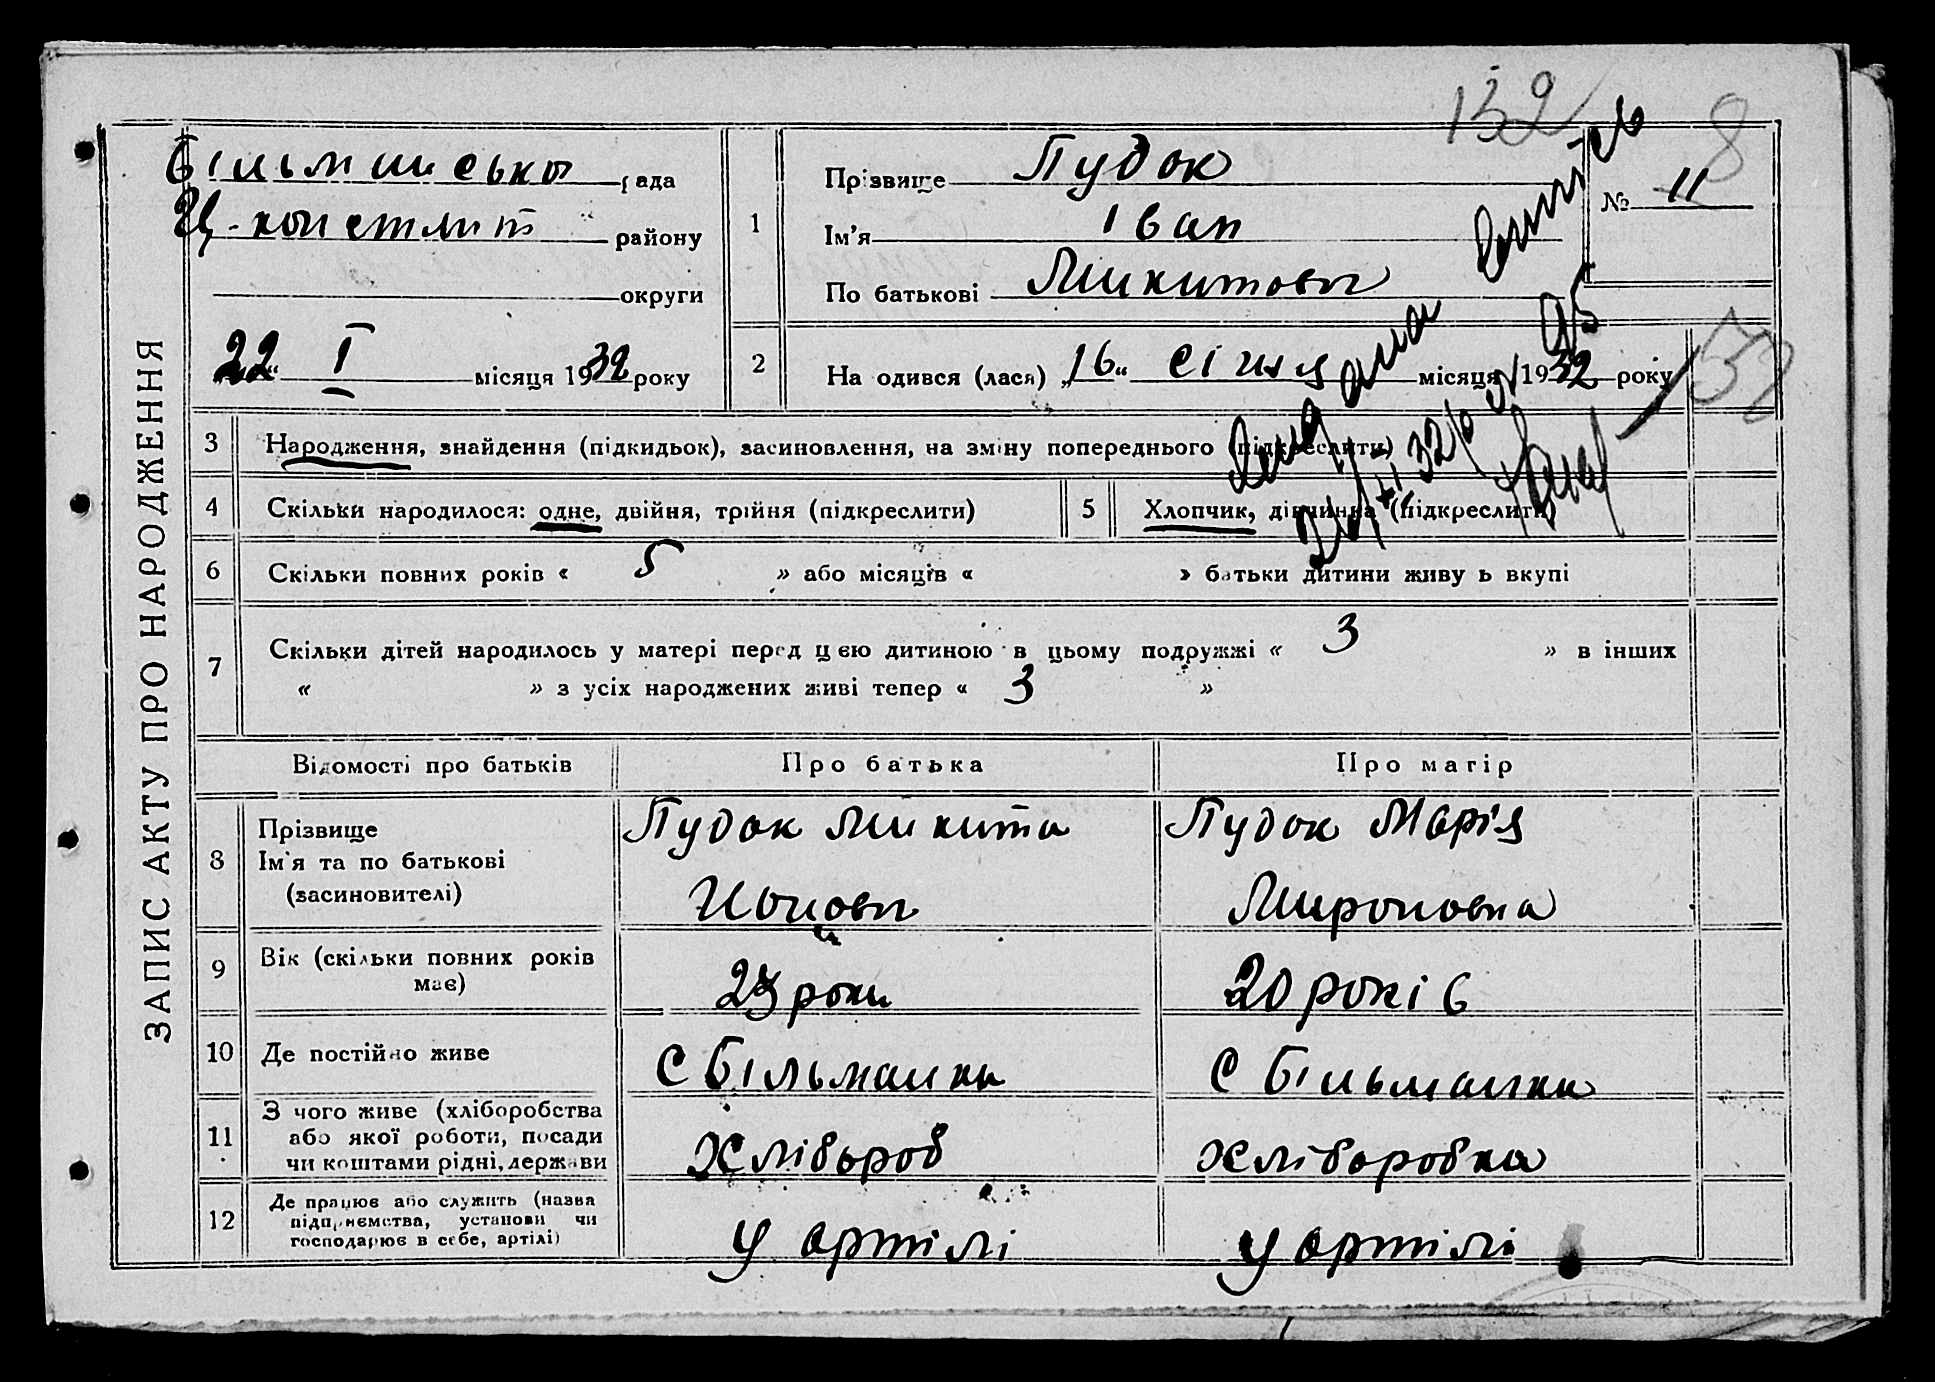 132
8
ЗАПИС АКТУ ПРО НАРОДЖЕННЯ
Більманська рада
Ц-констант району
округи
22 I місяця 1932 року
1 Прізвище Пудок
Ім’я Іван
По батькові Микитови
№ 11
2 На одився (лася) „16“ січня місяця 1932 року
52
3 Народження, знайдення (підкидьок), засиновлення, на зміну попереднього (підкреслити)
4 Скільки народилося: одне, двійня, трійня (підкреслити)
5 Хлопчик, дівчинка (підкреслити)
6 Скільки повних років « 5 » або місяців « » батьки дитини живу ь вкупі
7 Скільки дітей народилось у матері перед цією дитиною в цьому подружжі « 3 » в інших
« » з усіх народжених живі тепер « 3 »
Відомості про батьків Про батька Про матір
8 Прізвище
Ім’я та по батькові
(засиновителі)
Пудок Микита
Пудок Марія
Мироновна
9 Вік (скільки повних років
має)
роки
20 років
10 Де постійно живе
С Більманка
С Більманка
11 З чого живе (хліборобства
або якої роботи, посади
чи коштами рідні, держави
Хлібороб
Хліборобка
12 Де працює або служить (назва
підприємства, установи чи
господарює в себе, артілі)
У артілі
У артілі